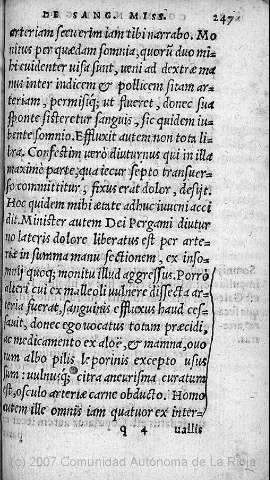 DE SANG. MISS. 247
arteriam secuerim iam tibi narrabo. Mo
nitus per quædam somnia, quorũ duo mi-
hi euidenter uisa sunt, ueni ad dextræ ma
nus inter indicem & pollicem sitam ar-
teriam, permisiq; ut flueret, donec sua
sponte sisteretur sanguis, sic quidem iu-
bente somnio. Effluxit autem non tota li
bra. Confestim uerò diuturnus qui in illa
maximè parte, qua iecur septo transuer-
so committitur, fixus erat dolor, desijt.
Hoc quidem mihi ætate adhuc iuueni acci
dit. Minister autem Dei Pergami diutur
no lateris dolore liberatus est per arte-
riæ in summa manu sectionem, ex inso-
mnijs quoq; monitu illud aggressus. Porrò
alteri cui ex malleoli uulnere dissecta ar-
teria fuerat, sanguinis effluxus haud ces-
sauit, donec ego uocatus totam præcidi,
ac medicamento ex aloë, & manna, & ouo
rum albo pilis leporinis excepto usus
sum: uulnusq; citra aneurisma curatum
est, osculo arteriæ carne obducto. Homo
autem ille omnis iam quatuor ex inter-
q 4 uallis
(c) 2007 Comunidad Autónoma de La Rioja